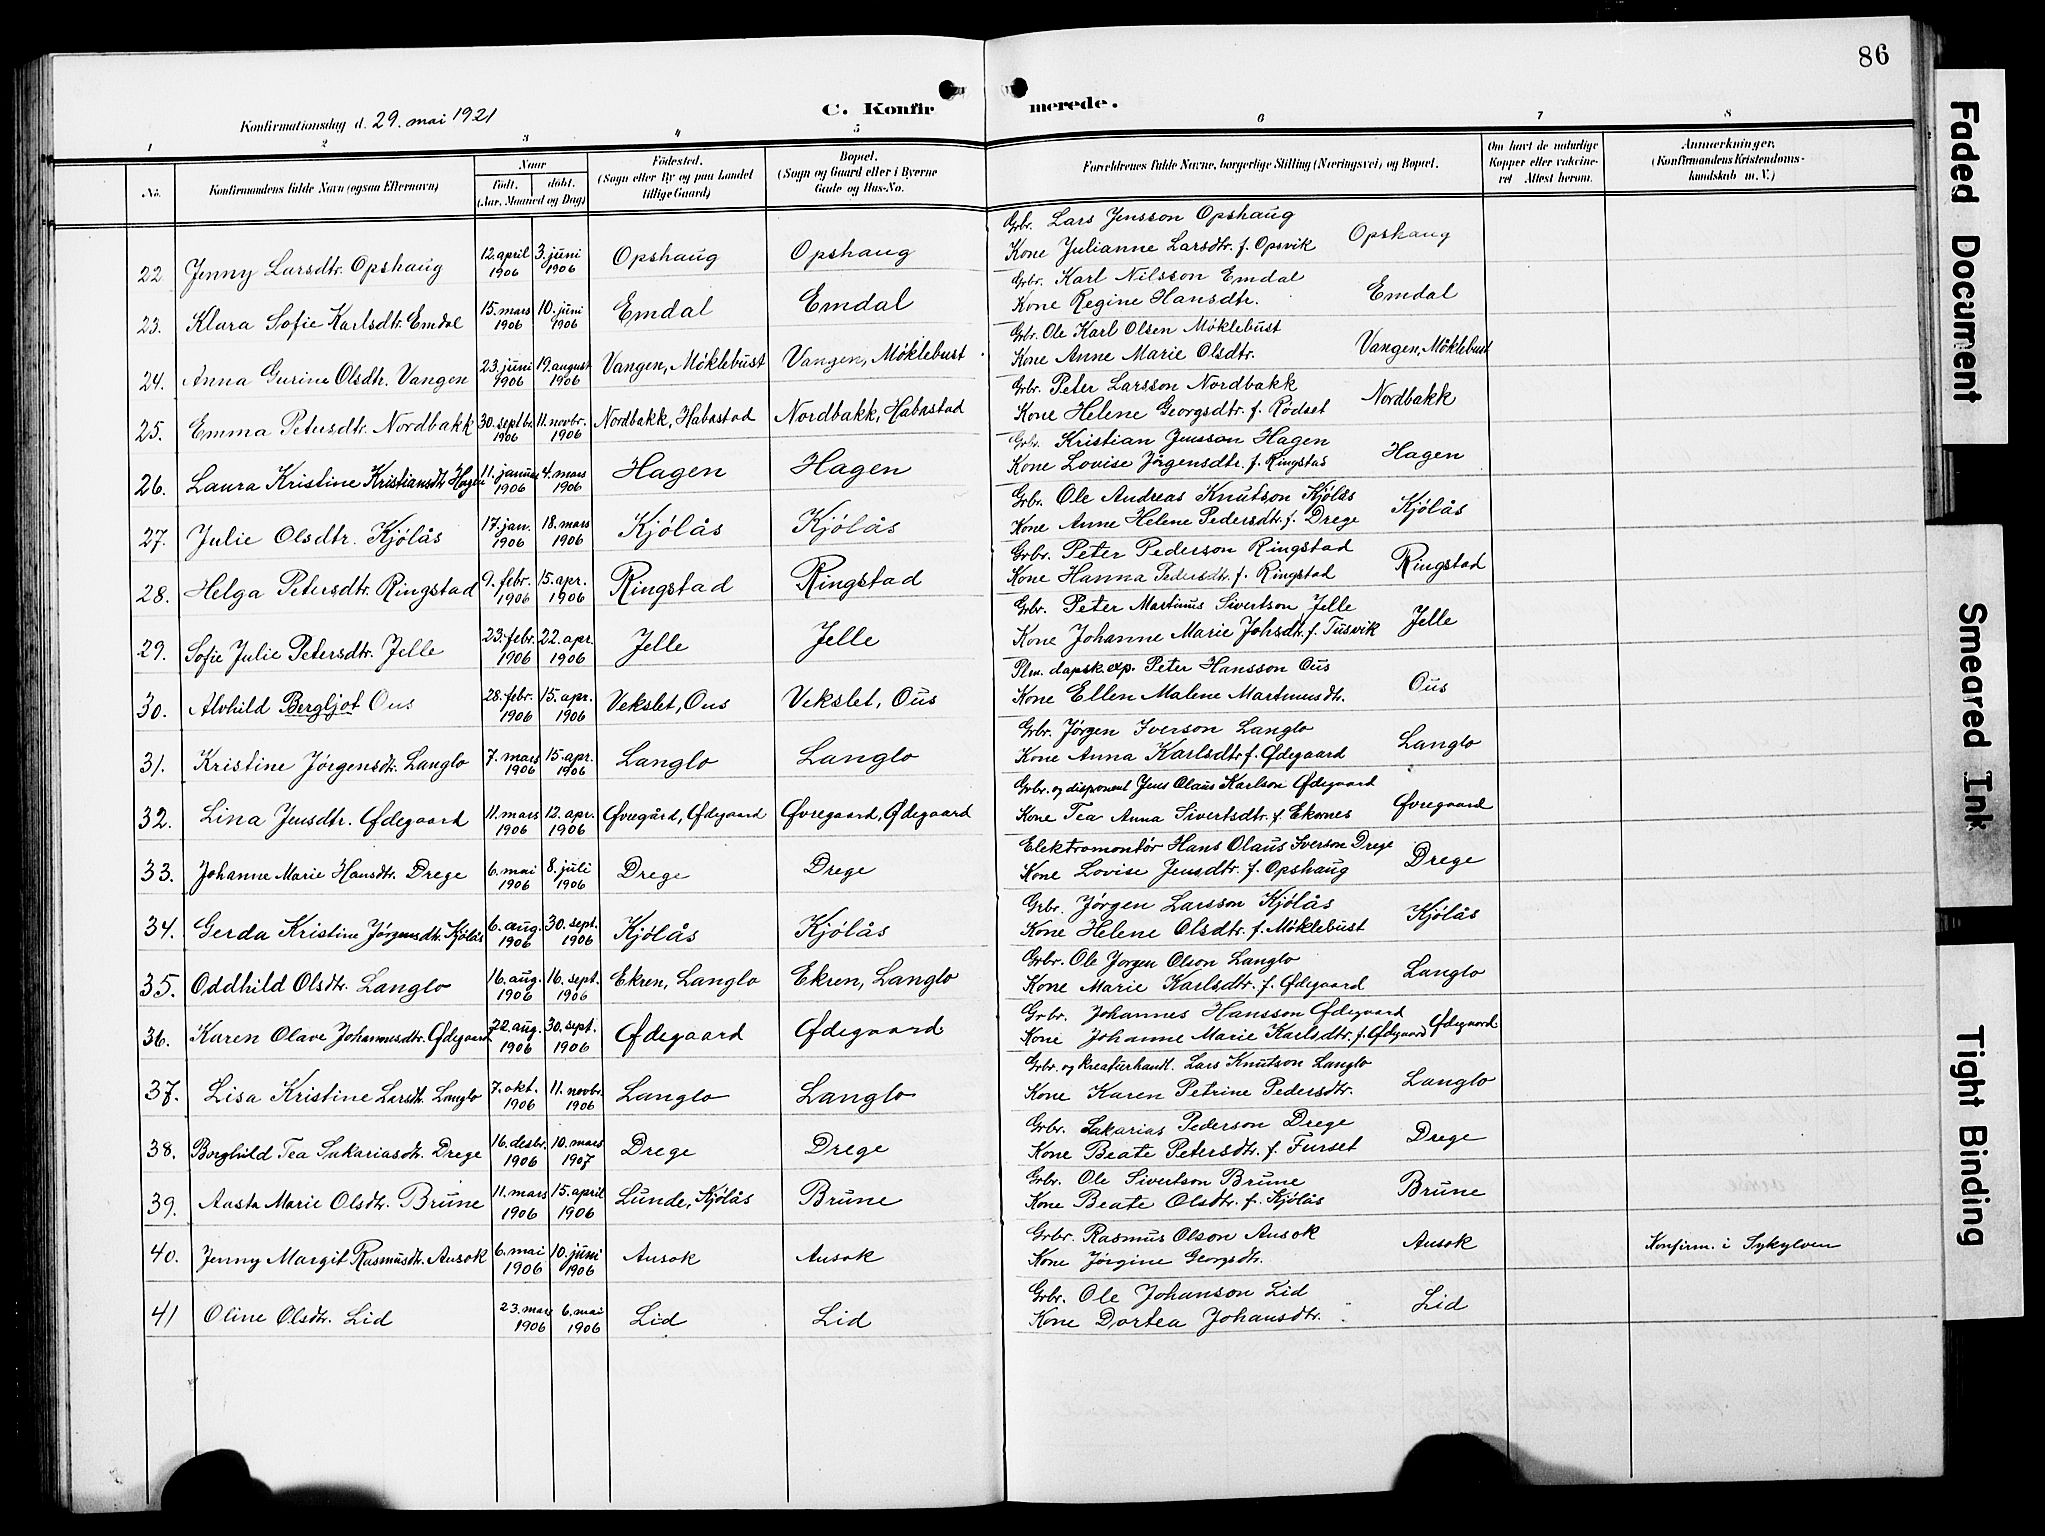 86
C. Konfirmerede.
Konfirmationsdag d. 29. mai 1921
1 2 3 4 5 6 7 8
No.
Konfirmandens fulde Navn (ogsaa Efternavn)
Naar
Født. døbt.
(Aar, Maaned og Dag)
Fødested.
(Sogn eller By og paa Landet
tillige Gaard)
Bopæl.
(Sogn og Gaard eller i Byerne
Gade og Hus-No.
Forældrenes fulde Navne, borgerlige Stilling (Næringsvei) og Bopæl.
Om havt de naturlige
Kopper eller vakcine-
ret Attest herom.
Anmerkninger,
(Konfirmandens Kristendoms-
kundskab m. V.)
22 Jenny Larsdtr. Opshaug 12. april 1906 3. juni 1906 Opshaug Opshaug
Grbr. Lars Jensson Opshaug
Kone Julianne Larsdtr. f. Opsvik Opshaug
23. Klara Sofie Karlsdtr. Emdal 15. mars 1906 10. juni 1906 Emdal Emdal
Grbr. Karl Nilsson Emdal
Kone Regine Hansdtr. Emdal
24. Anna Gurine Olsdtr. Vangen 23. juni 1906 19. august 1906 Vangen, Møklebust Vangen, Møklebust
Grbr. Ole Karl Olsen Møklebust
Kone Anne Marie Olsdtr. Vangen, Møklebust
25. Emma Petersdtr. Nordbakk 30. septbr. 1906 11. novbr. 1906 Nordbakk, Habastad Nordbakk, Habastad
Grbr. Peter Larsson Nordbakk
Kone Helene Georgsdtr. f. Rødset Nordbakk
26. Laura Kristine Kristiansdtr Hagen 11. januar 1906 4. mars 1906 Hagen Hagen
Grbr. Kristian Jensson Hagen
Kone Lovise Jørgensdtr. f. Ringstad Hagen
27. Julie Olsdtr. Kjølås 17. jan. 1906 18. mars 1906 Kjølås Kjølås
Grbr. Ole Andreas Knutson Kjølås
Kone Anne Helene Pedersdtr. f. Drege Kjølås
28. Helga Petersdtr. Ringstad 9. febr. 1906 15. apr. 1906 Ringstad Ringstad
Grbr. Peter Pederson Ringstad
Kone Hanna Pedersdtr. f. Ringstad Ringstad
29. Sofie Julie Petersdtr. Jelle 23. febr. 1906 22. apr. 1906 Jelle Jelle
Grbr. Peter Martinus Sivertson Jelle
Kone Johanne Marie Johsdtr. f. Tusvik Jelle
30. Alvhild Bergljot Ous 28. febr. 1906 15. apr. 1906 Vekslet, Ous Vekslet, Ous
Plm. dapsk.exp. Peter Hansson Ous
Kone Ellen Malene Martinusdtr. Ous
31. Kristine Jørgensdtr. Langlo 7. mars 1906 15. apr. 1906 Langlo Langlo
Grbr. Jørgen Iverson Langlo
Kone Anna Karlsdtr. f. Ødegaard Langlo
32. Lina Jensdtr. Ødegaard 11. mars 1906 12. apr. 1906 Øvregård, Ødegaard Øvregaard, Ødegaard
Grbr. og disponent Jens Olaus Karlson Ødegaard
Kone Tea Anna Sivertsdtr. f. Ekornes Øvregaard
33. Johanne Marie Hansdtr. Drege 6. mai 1906 8. juli 1906 Drege Drege
Elektromontør Hans Olaus Iverson Drege
Kone Lovise Jensdtr. f. Opshaug Drege
34. Gerda Kristine Jørgensdtr. Kjølås 6. aug. 1906 30. sept. 1906 Kjølås Kjølås
Grbr. Jørgen Larsson Kjølås
Kone Helene Olsdtr. f. Møklebust Kjølås
35. Oddhild Olsdtr. Langlo 16. aug. 1906 16. sept. 1906 Ekren, Langlo Ekren, Langlo
Grbr. Ole Jørgen Olson Langlo
Kone Marie Karlsdtr. f. Ødegaard Langlo
36. Karen Olave Johannesdtr. Ødegaard 22. aug. 1906 30. sept. 1906 Ødegaard Ødegaard
Grbr. Johannes Hansson Ødegaard
Kone Johanne Marie Karlsdtr. f. Ødegaard Ødegaard
37. Lisa Kristine Larsdtr. Langlo 7. okt. 1906 11. novbr. 1906 Langlo Langlo
Grbr. og kreaturhandl. Lars Knutson Langlo
Kone Karen Petrine Pedersdtr. Langlo
38. Borghild Tea Sakariasdtr. Drege 16. desbr. 1906 10. mars 1907 Drege Drege
Grbr. Sakarias Pederson Drege
Kone Beate Petersdtr. f. Furset Drege
39. Aasta Marie Olsdtr. Brune 11. mars 1906 15. april 1906 Lunde, Kjølås Brune
Grbr. Ole Sivertson Brune
Kone Beate Olsdtr. f. Kjølås Brune
40. Jenny Margit Rasmusdtr. Ausok 6. mai 1906 10. juni 1906 Ausok Ausok
Grbr. Rasmus Olson Ausok
Kone Jørgine Georgsdtr. Ausok Konfirm. i Sykylven
41 Oline Olsdtr. Lid 23. mars 1906 6. mai 1906 Lid Lid
Grbr. Ole Johanson Lid
Kone Dortea Johansdtr. Lid
Faded Document
Smeared Ink
Tight Binding